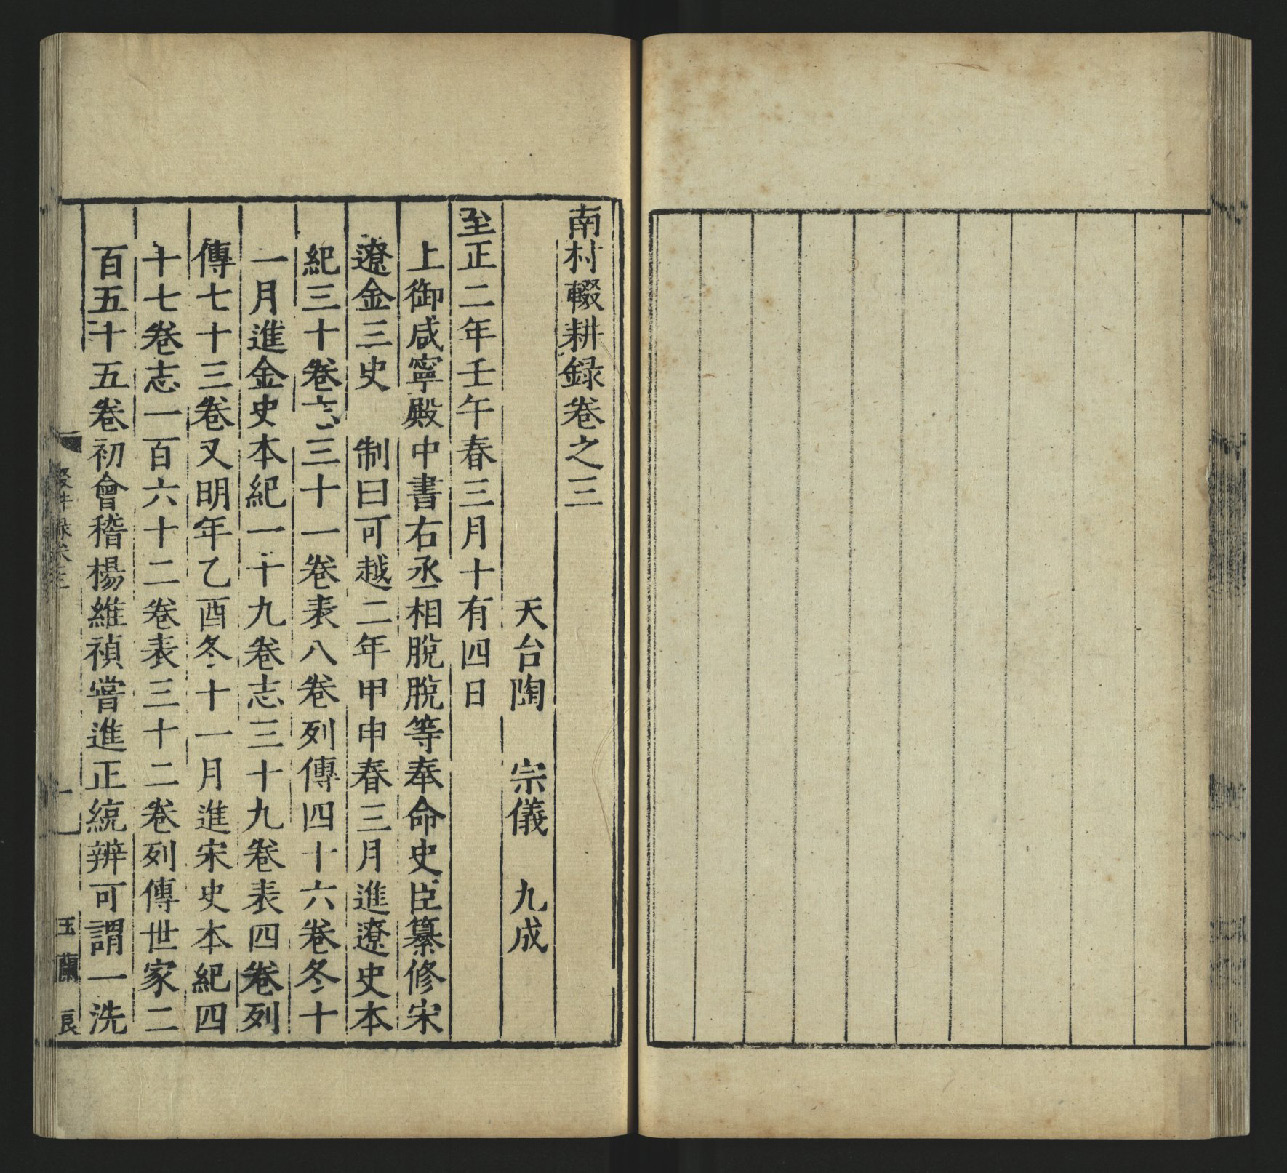 南村輟耕錄卷之三
天台陶 宗儀 九成
至正二年壬午春三月十有四日
上御咸寧殿中書右丞相脫脫等奉命史臣纂修宋
遼金三史 制曰可越二年甲申春三月進遼史本
紀三十卷志三十一卷表八卷列傳四十六卷冬十
一月進金史本紀一十九卷志三十九卷表四卷列
傳七十三卷又明年乙酉冬十一月進宋史本紀四
十七卷志一百六十二卷表三十二卷列傳世家二
百五十五卷初會稽楊維禎嘗進正統辨可謂一洗
一
玉蘭